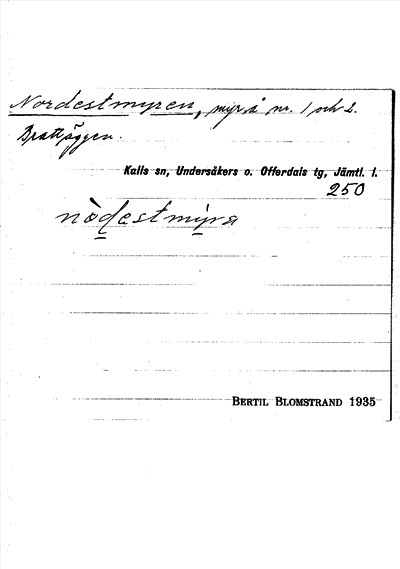 Nordestmyren, myr å nr. 1 och 2.
Brattäggen.
Kalls sn, Undersåkers o. Offerdals tg, Jämtl. l.
250
nòdestmỳra
BERTIL BLOMSTRAND 1935